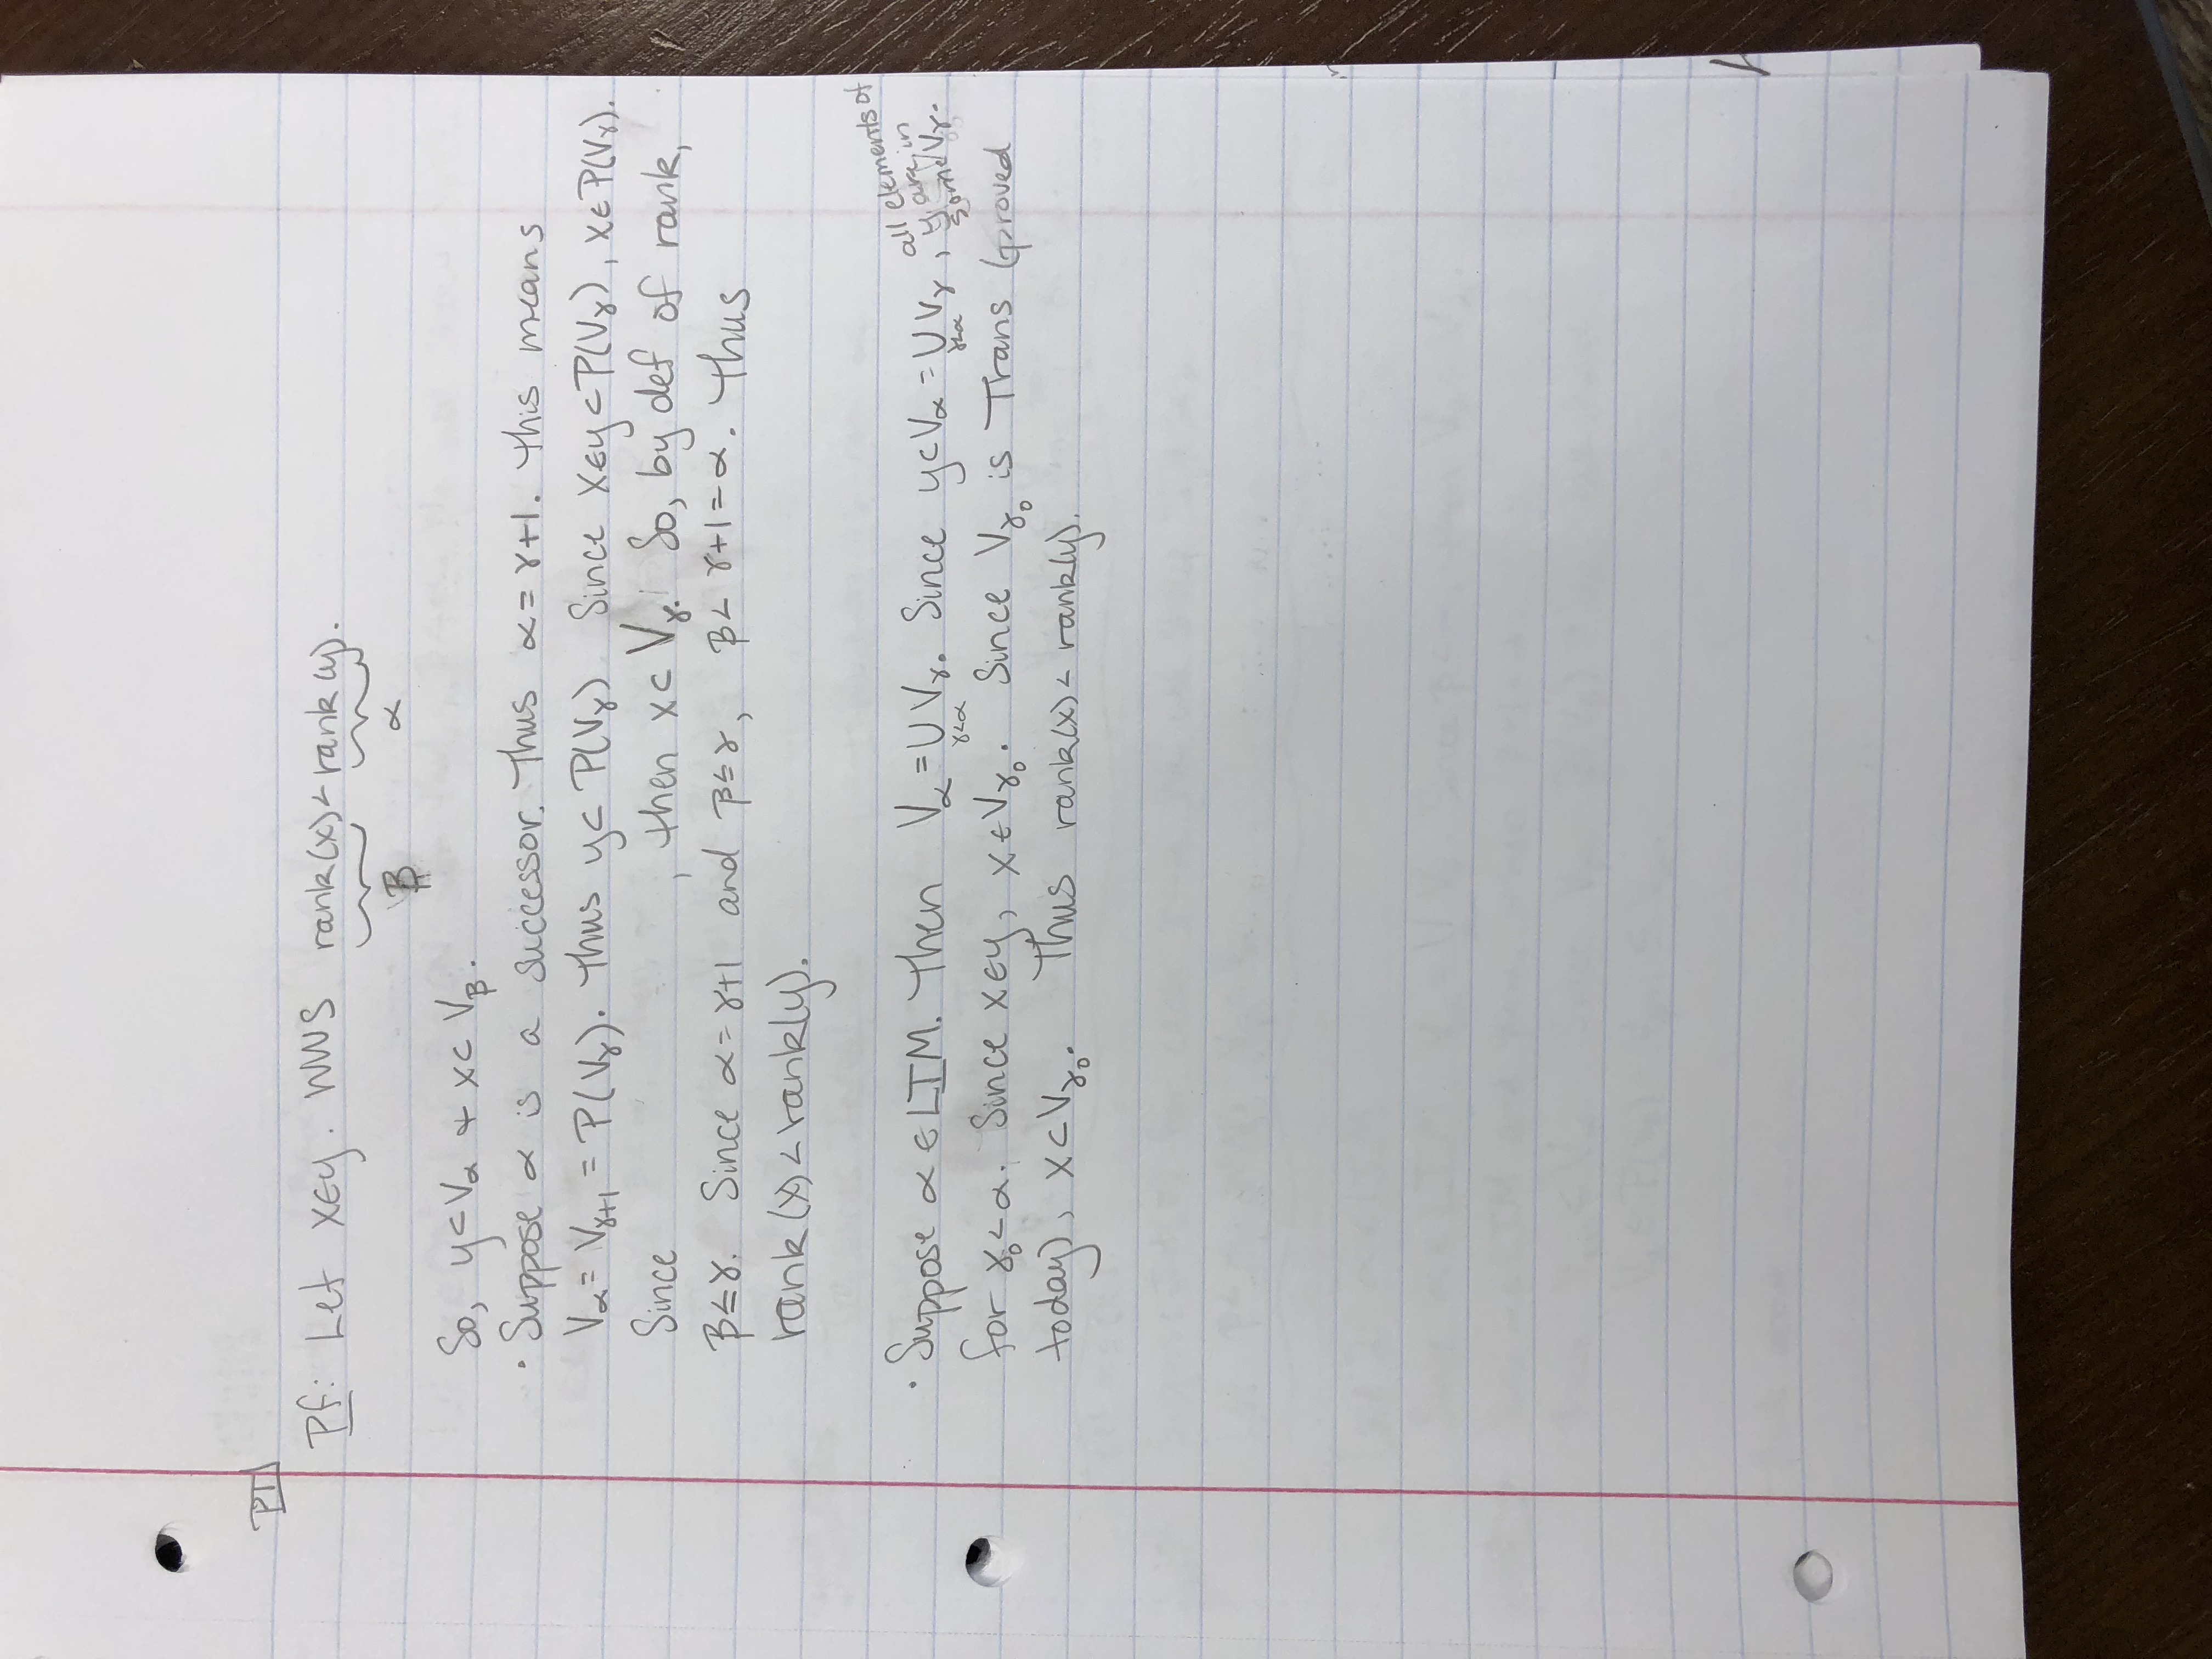 P1
Pf: Let x∈y. WWS rank(x)<rank(y).
β α
So, y⊂Vα + x⊂Vβ.
· Suppose α is a successor. Thus α=γ+1. This means
Vα=Vγ+1=P(Vγ). Thus y⊂P(Vγ) Since x∈y⊂P(Vγ), x∈P(Vγ).
Since , then x⊂Vγ. So, by def of rank,
β≤γ. Since α=γ+1 and β≤γ, β<γ+1=α. Thus
rank(x)<rank(y).
· Suppose α∈LIM. Then Vα=∪γ<α Vγ. Since y⊂Vα=∪γ<α Vγ, all elements of y are in some Vγ.
for γ₀<α. Since x∈y, x∈Vγ₀. Since Vγ₀ is Trans (proved
today), x⊂Vγ₀. Thus rank(x)<rank(y).